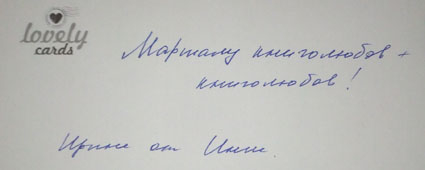 lovely
cards
Маршалу книголюбов +
книголюбов!
Ирине от Инны